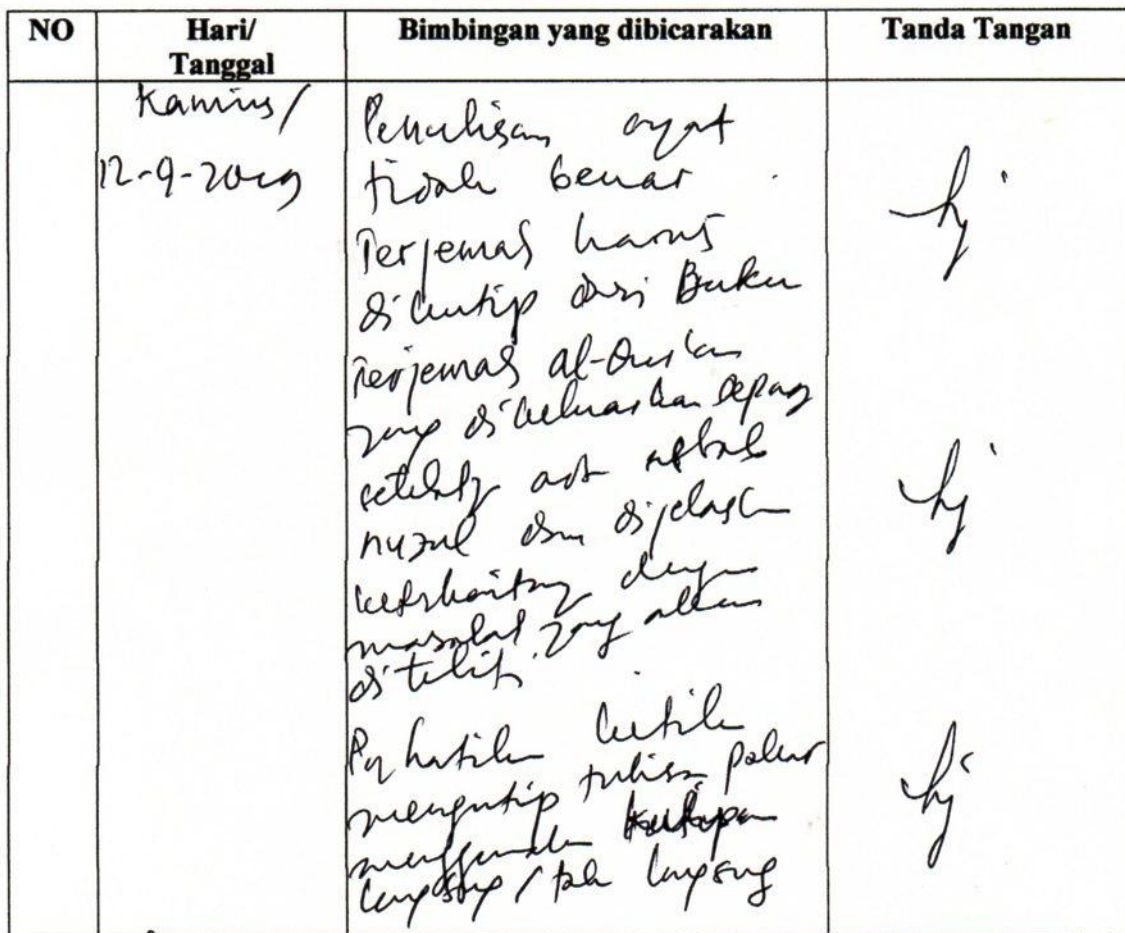 NO Hari/ Bimbingan yang dibicarakan Tanda Tangan
Tanggal
Kamis/
12-9-2019
Penulisan ayat
tidak benar
Terjemah harus
dikutip dari Buku
Terjemah al-Qur'an
yang dikeluarkan Depag
setelah ada asbab
nuzul dan dijelaskan
keterkaitan dengan
masalah yang akan
diteliti.
Perhatikan ketika
mengutip tulisan pakar
menggunakan kutipan
langsung / tak langsung